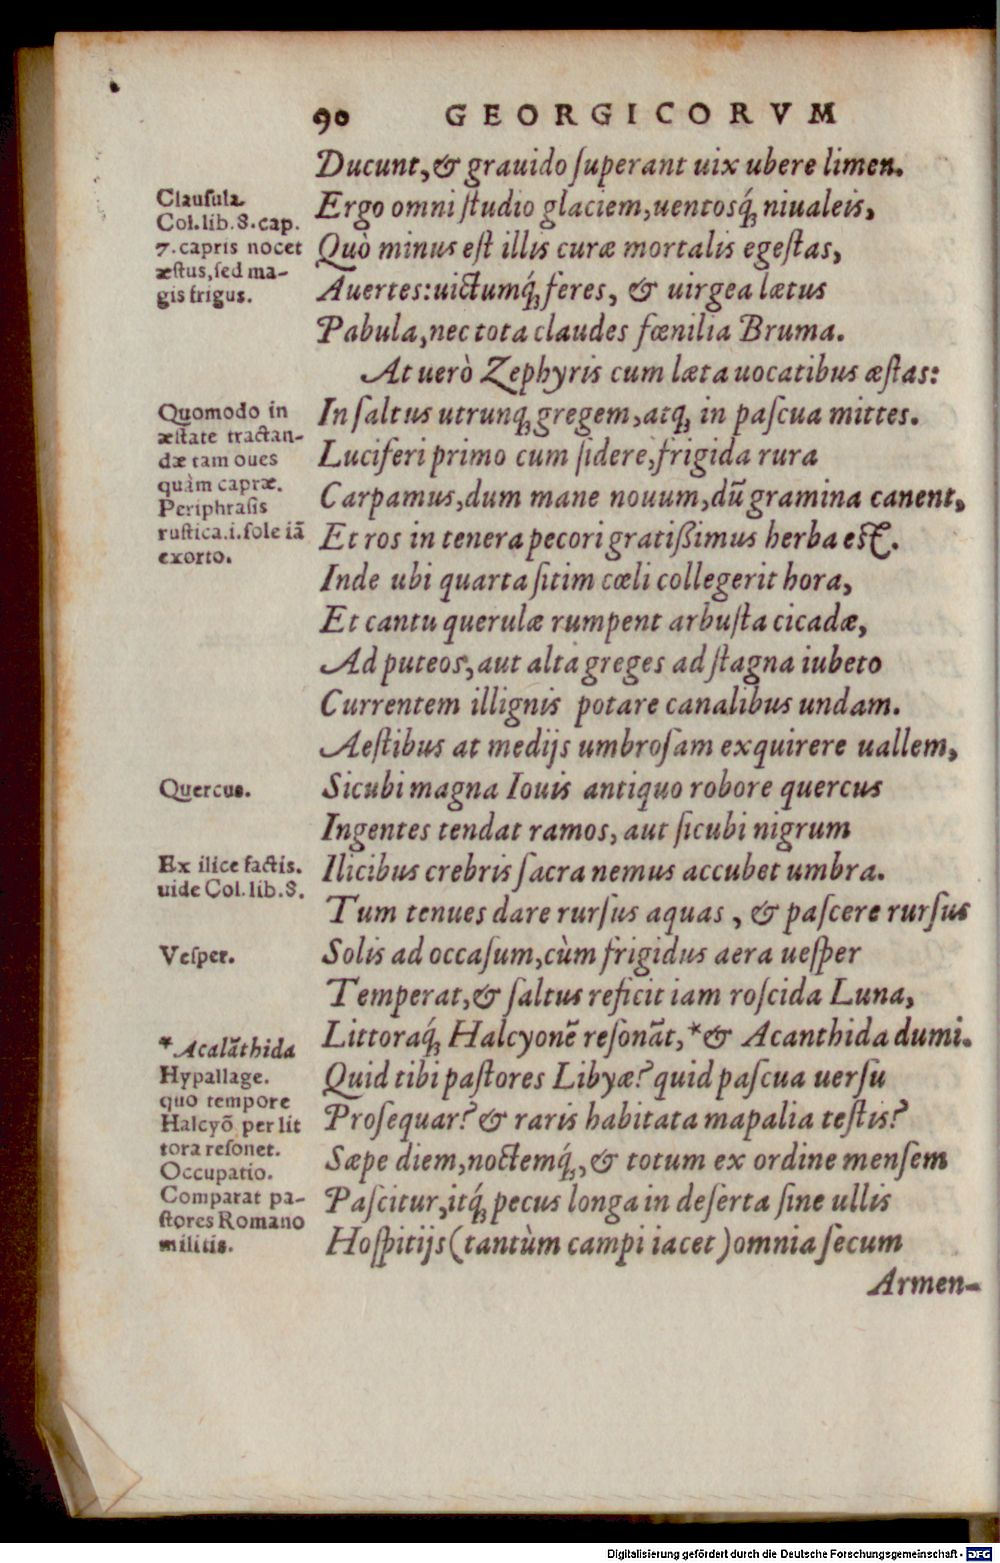 90 GEORGICORVM
Ducunt, & grauido ſuperant uix ubere limen.
Clauſula.
Ergo omni ſtudio glaciem, uentosq́; niualeis,
Col. lib. 8. cap.
7. capris nocet
Quò minus eſt illis curæ mortalis egeſtas,
æſtus, ſed ma-
gis frigus.
Auertes: uictumq́; feres, & uirgea lætus
Pabula, nec tota claudes fœnilia Bruma.
At uerò Zephyris cum læta uocatibus æſtas:
Quomodo in
In ſaltus utrunq; gregem, atq; in paſcua mittes.
æſtate tractan-
dæ tam oues
Luciferi primo cum ſidere, frigida rura
quàm capræ.
Carpamus, dum mane nouum, dũ gramina canent,
Periphraſis
ruſtica. i. ſole iã
Et ros in tenera pecori gratißimus herba eſt.
exorto.
Inde ubi quarta ſitim cœli collegerit hora,
Et cantu querulæ rumpent arbuſta cicadæ,
Ad puteos, aut alta greges ad ſtagna iubeto
Currentem illignis potare canalibus undam.
Aeſtibus at medijs umbroſam exquirere uallem,
Quercus.
Sicubi magna Iouis antiquo robore quercus
Ingentes tendat ramos, aut ſicubi nigrum
Ex ilice factis.
Ilicibus crebris ſacra nemus accubet umbra.
uide Col. lib. 8.
Tum tenues dare rurſus aquas, & paſcere rurſus
Veſper.
Solis ad occaſum, cùm frigidus aera ueſper
Temperat, & ſaltus reficit iam roſcida Luna,
Littoraq́; Halcyonẽ reſonãt, *& Acanthida dumi.
* Acalãthida
Hypallage.
Quid tibi paſtores Libyæ? quid paſcua uerſu
quo tempore
Halcyõ per lit
Proſequar? & raris habitata mapalia teſtis?
tora reſonet.
Occupatio.
Sæpe diem, noctemq́;, & totum ex ordine menſem
Comparat pa-
Paſcitur, itq́; pecus longa in deſerta ſine ullis
ſtores Romano
militis.
Hoſpitijs (tantùm campi iacet) omnia ſecum
Armen-
Digitalisierung gefördert durch die Deutsche Forschungsgemeinschaft - DFG